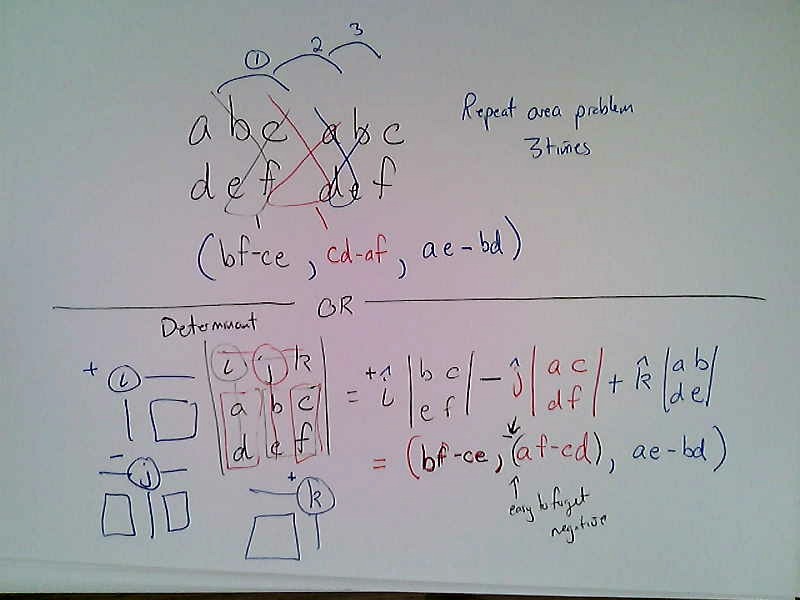 ① 2 3
a b c a b c
d e f d e f
Repeat area problem
3 times
(bf-ce, cd-af, ae-bd)
OR
Determinant
| i j k |
| a b c |
| d e f |
= +î |b c| - ĵ |a c| + k̂ |a b|
|e f| |d f| |d e|
= (bf-ce, -(af-cd), ae-bd)
easy to forget
negative
+ i
- j
+ k